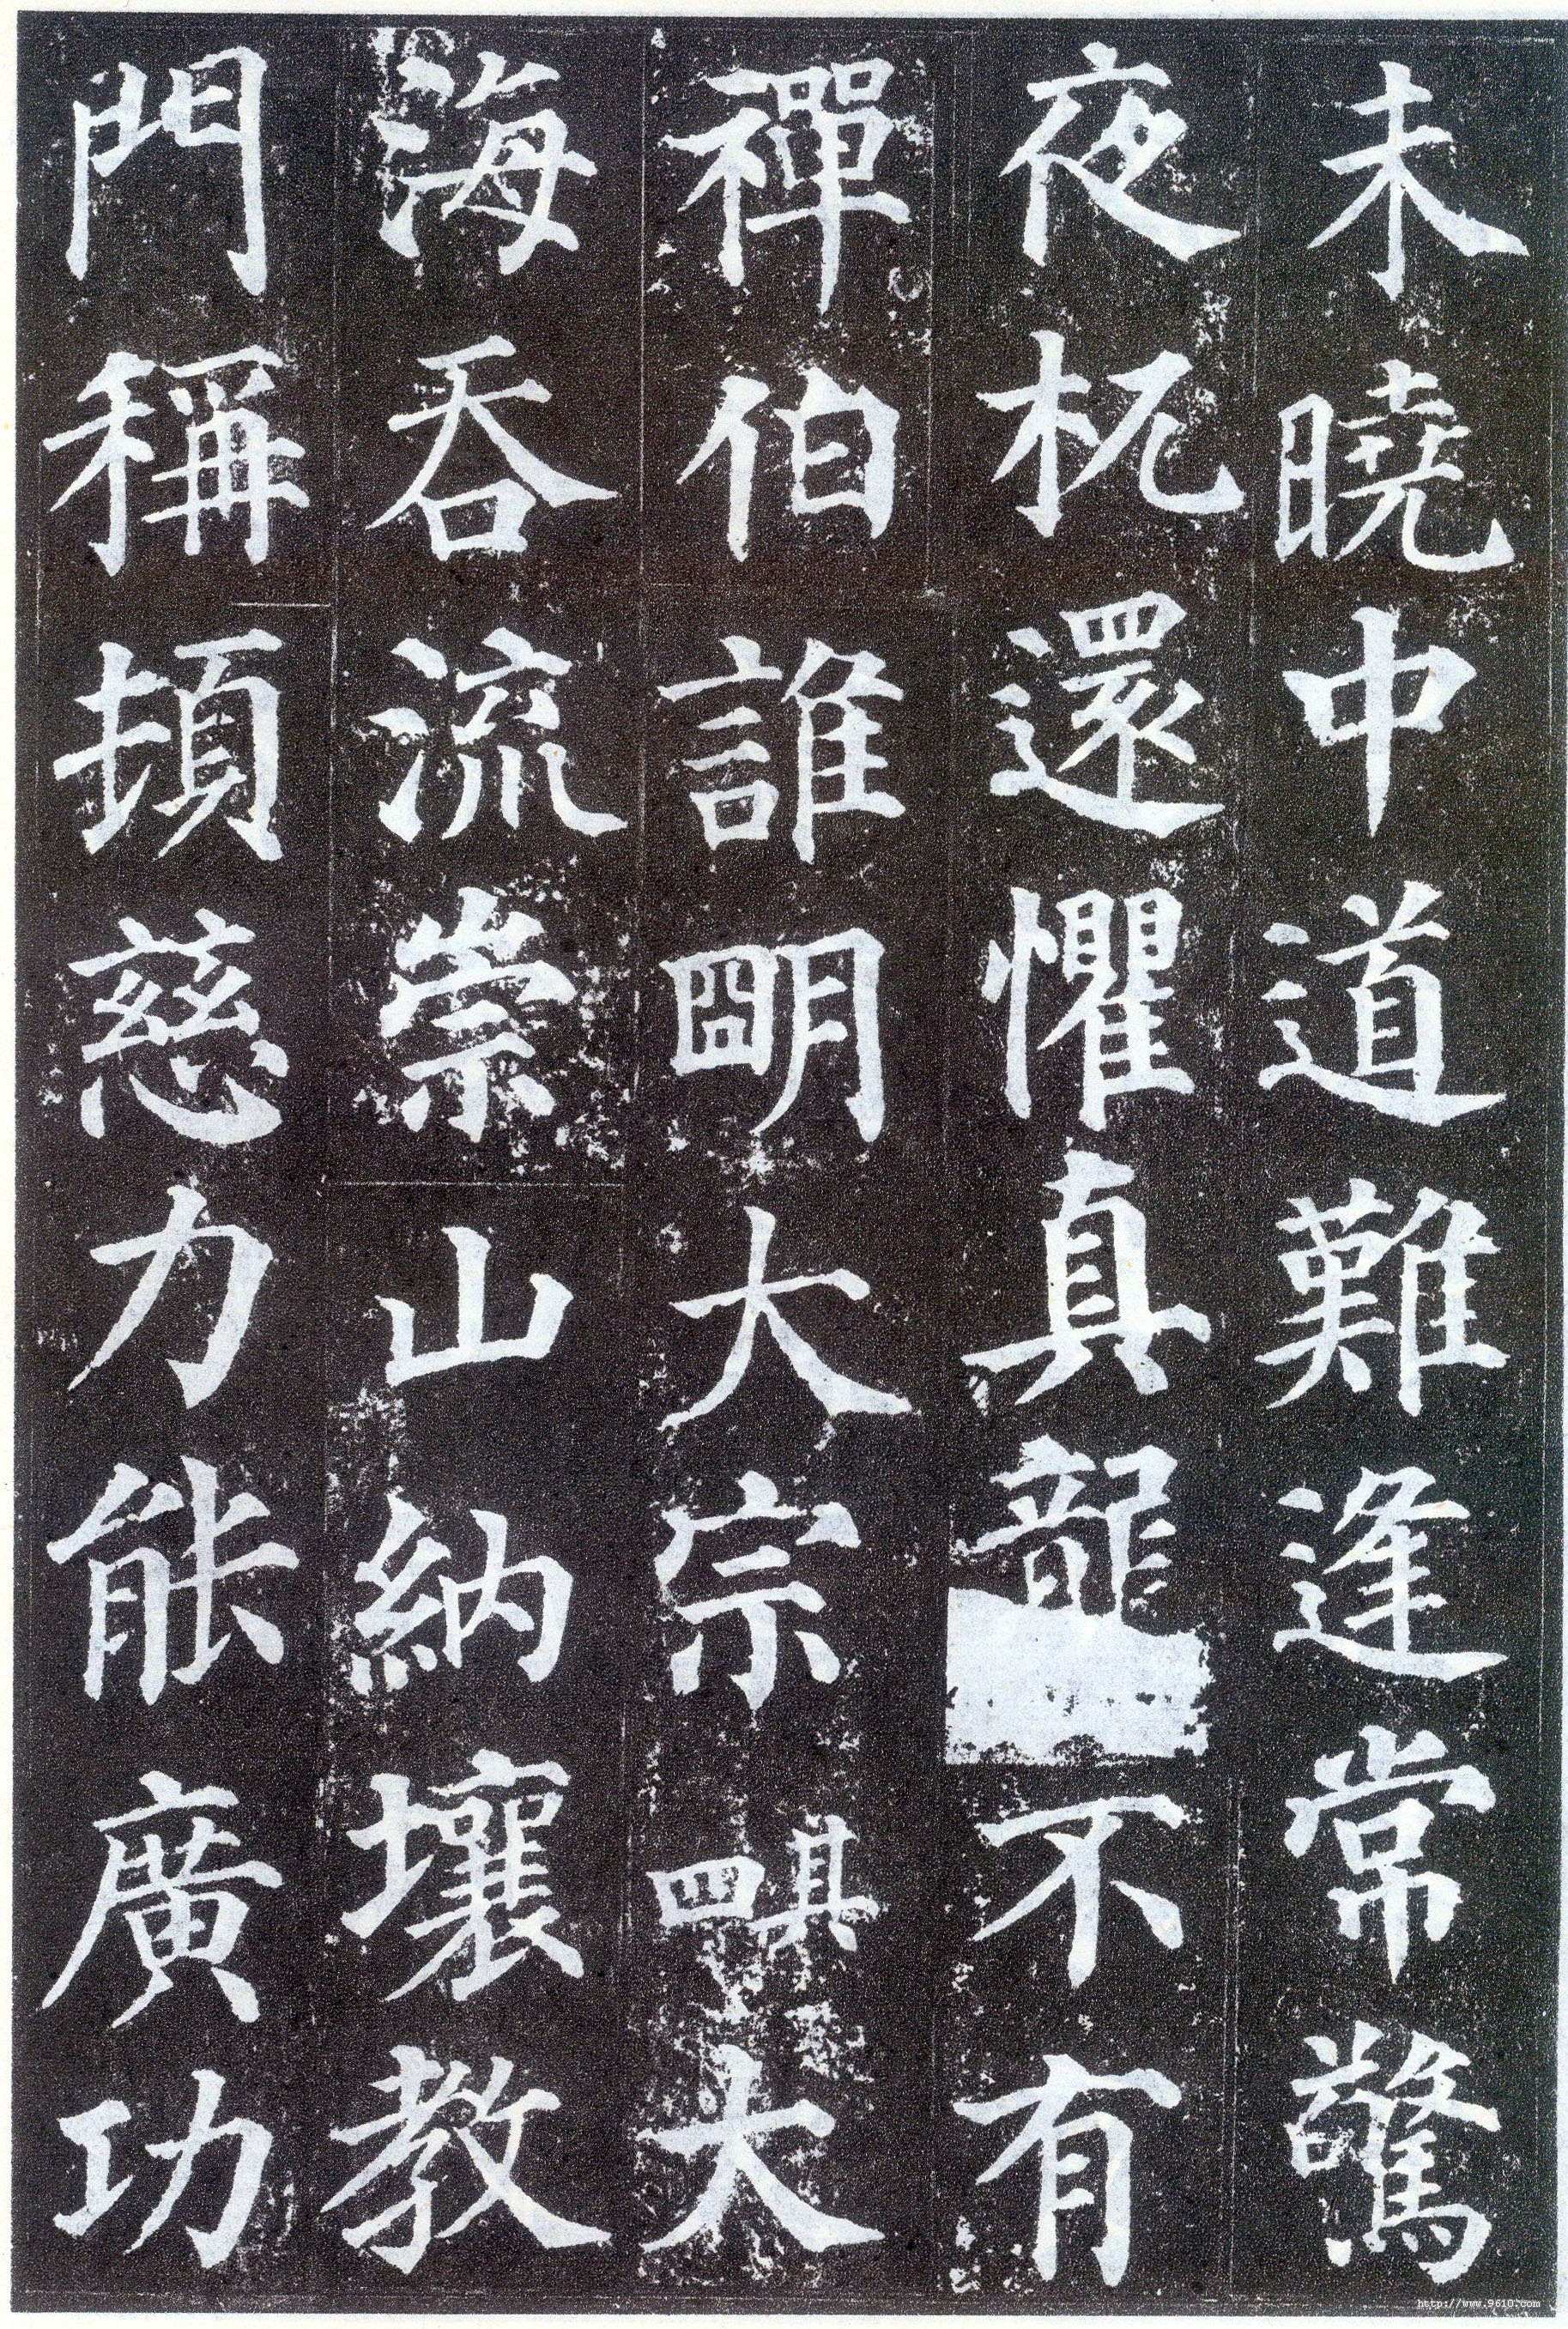 未曉中道難逢常驚
夜杌還懼真龍不有
禪伯誰明大宗其四大
海吞流崇山納壤教
門稱頓慈力能廣功
http://www.9610.com